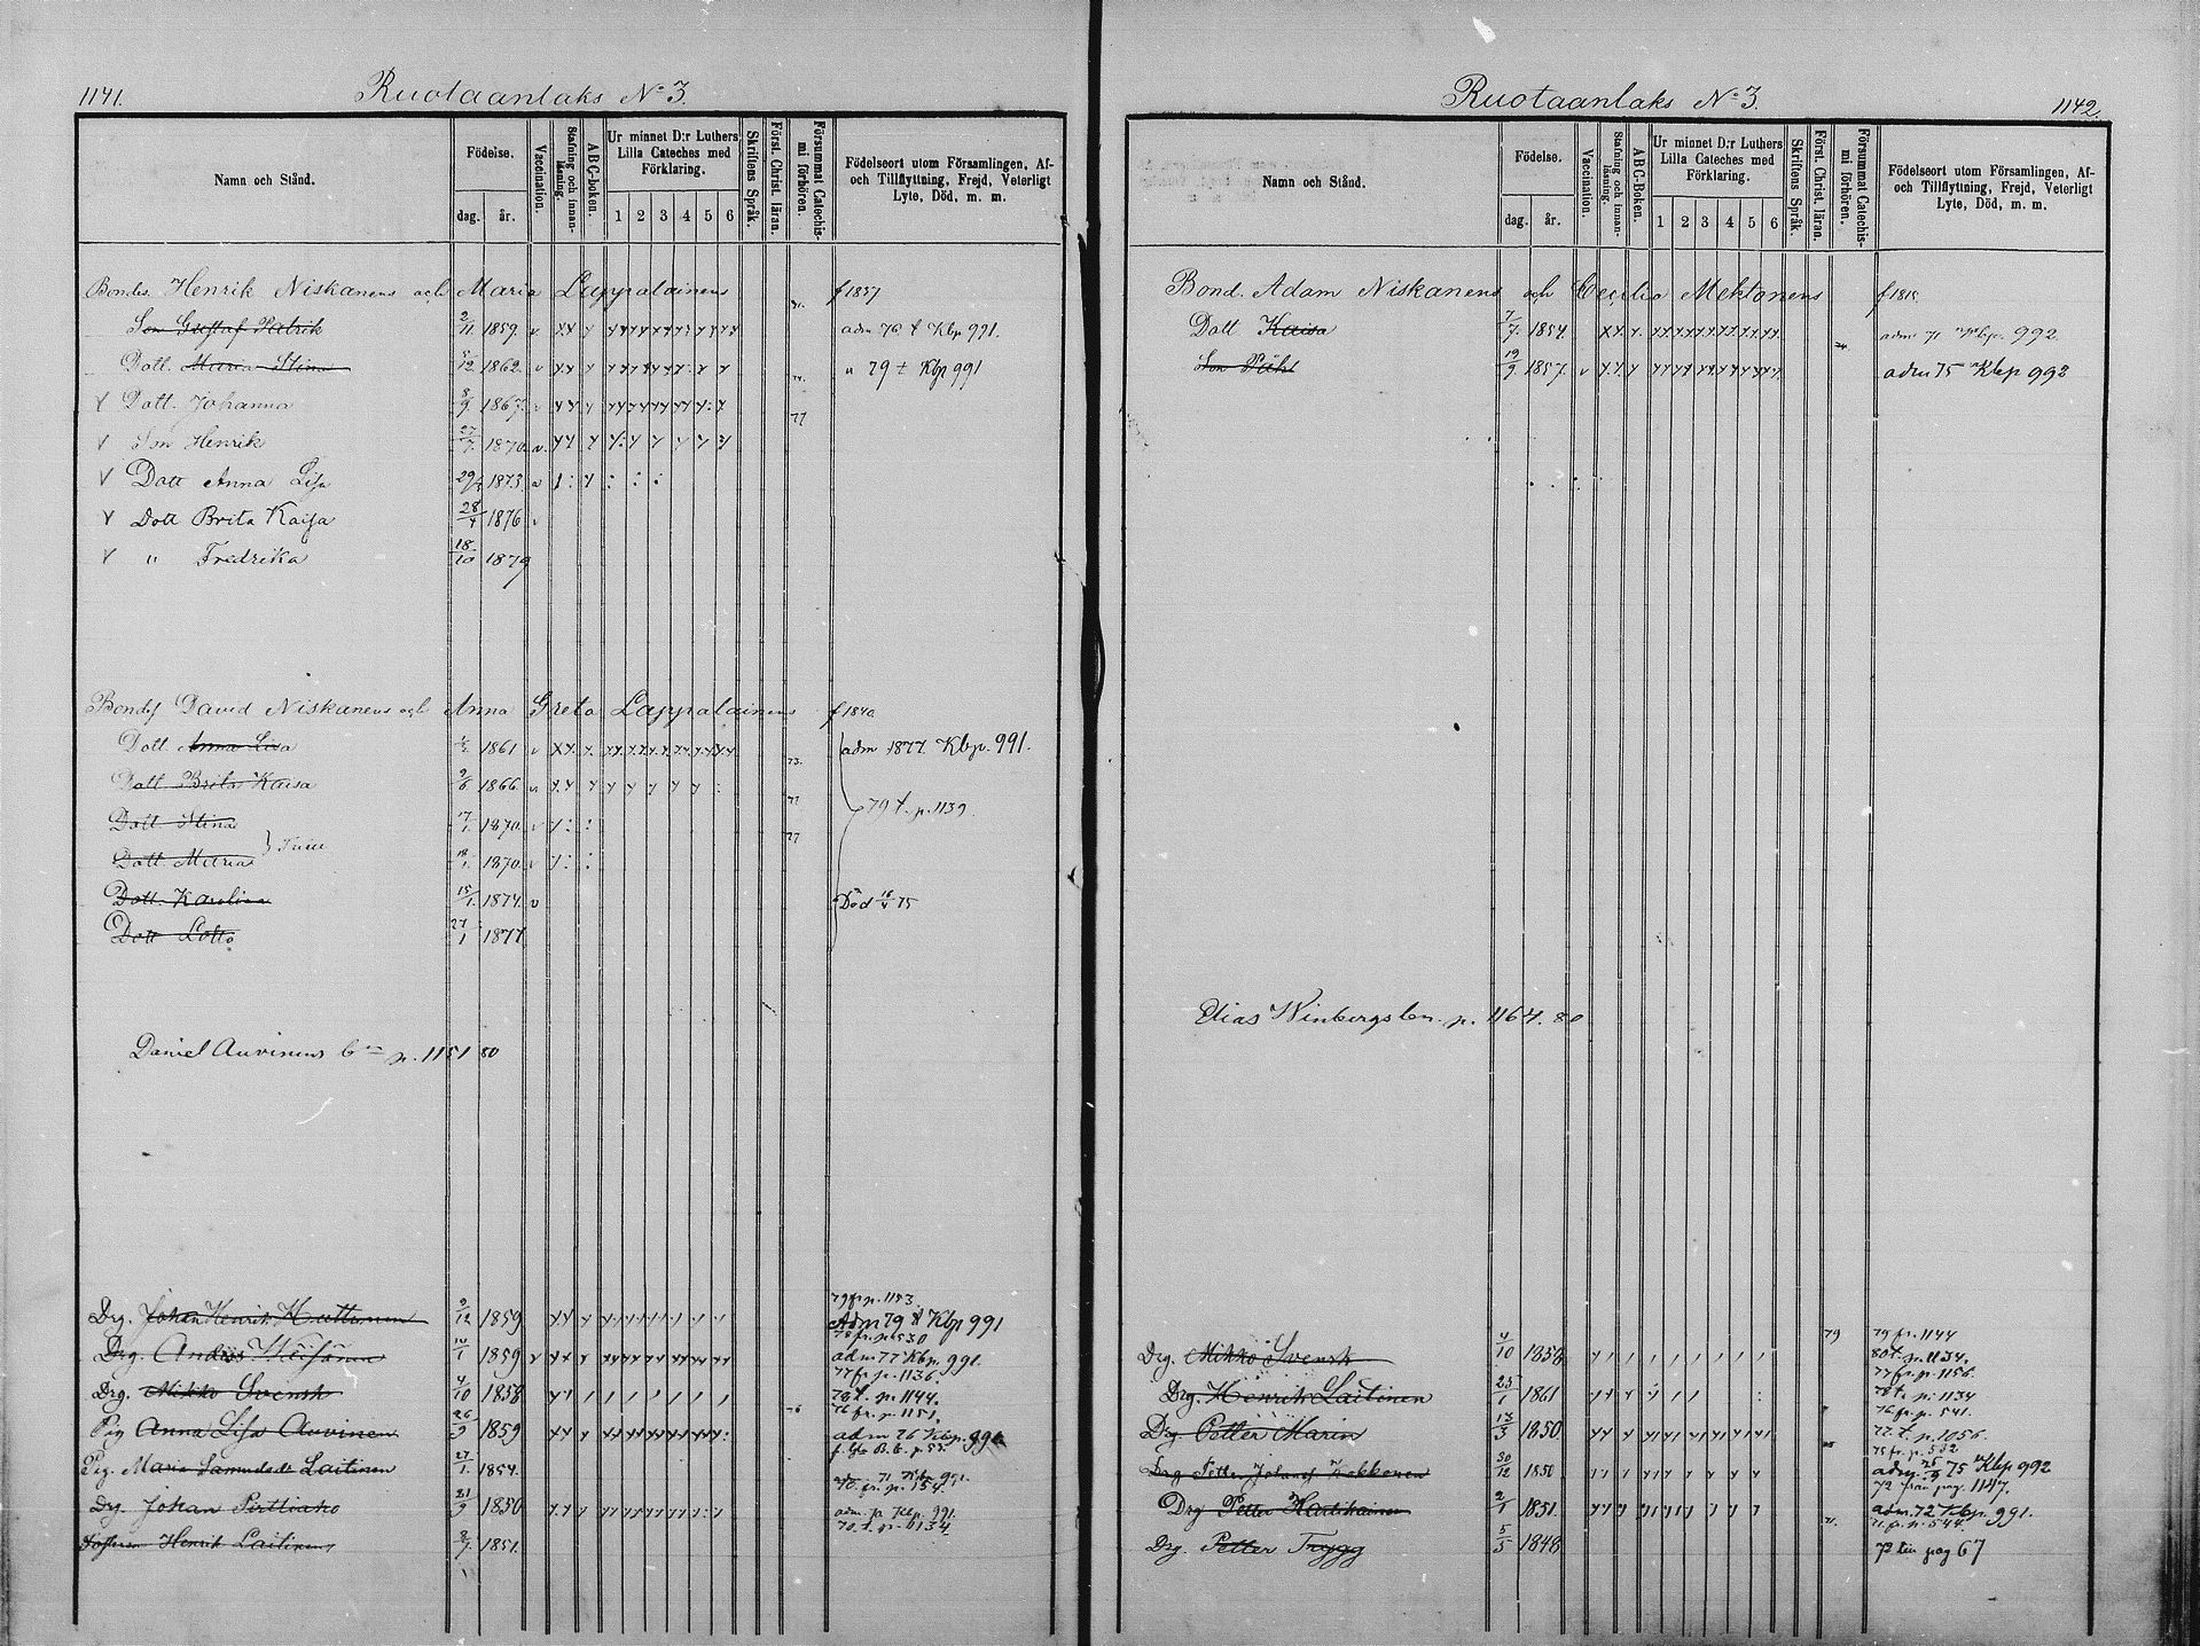 1141. Ruotaanlaks No 3.
Namn och Stånd. Födelse. dag. år. Vaccination. Stafning och innanläsning. ABC-boken. Ur minnet D:r Luthers Lilla Cateches med Förklaring. 1 2 3 4 5 6 Skriftens Språk. Först. Christ. läran. Försummat Catechismi förhören. Födelseort utom Församlingen, Af- och Tillflyttning, Frejd, Veterligt Lyte, Död, m. m.
Bondes. Henrik Niskanens och Maria Lappalainens f 1837
Son Gustaf Patrik 2/11 1859. adm 76 t Kbp 991.
Dott. Maria Stina 5/12 1862. " 79 t Kbp 991
Dott. Johanna 8/9 1867. 77
Son Henrik 27/7 1870.
Dott Anna Lisa 29/ 1873.
Dott Brita Kaisa 28/4 1876
" Fredrika 18/10 1879
Bondes David Niskanens och Anna Greta Lappalainens f 1840
Dott Anna Lisa 1861 73. adm 1877 Kbp. 991.
Dott Brita Kaisa 9/6 1866. 77 79 t. p. 1139.
Dott Stina 17/1 1870. 77
Dott. Maria 18/1 1870.
Dott. Karolina 15/1 1874. Död 16/4 75
Dott Lotta 27/1 1877
Daniel Auvinens p. 1151 80
79 fr p. 1153
Drg. Johan Henrik Huttunen 9/12 1859 Adm 79 t Kbp 991
78 fr. p. 530
Drg. Anders Heiskanen 10/1 1859 adm 77 Kbp. 991.
77 fr p. 1136.
Drg. Mikko Svensk 4/10 1858 78 t. p. 1144.
76 fr. p. 1151.
Pig Anna Lisa Auvinen 26/9 1859 76 adm 76 Kbp. 990
Pig. Maria Laitinen 27/1 1854. adm. 71 Kbp 991.
70. fr. p. 154.
Drg. Johan Perttiaho 21/9 1850 adm. Kbp. 991.
70. t. p. 1134.
Henrik Laitinens 8/7 1851.
Ruotaanlaks No 3. 1142.
Namn och Stånd. Födelse. dag. år. Vaccination. Stafning och innanläsning. ABC-Boken. Ur minnet D:r Luthers Lilla Cateches med Förklaring. 1 2 3 4 5 6 Skriftens Språk. Först. Christ. läran. Försummat Catechismi förhören. Födelseort utom Församlingen, Af- och Tillflyttning, Frejd, Veterligt Lyte, Död, m. m.
Bond. Adam Niskanens och Cecilia Mektonens f 1815.
Dott Kaisa 7/7 1854. adm 71 Kbp. 992.
Son Påhl 19/9 1857. adm 75 Kbp 992
Elias Winbergs p. 1164. 80
79 79 fr. 1144
Drg. Mikko Svensk 4/10 1858 80 t. p. 1134.
77 fr. p. 1156.
Drg. Henrik Laitinen 25/1 1861 78 t. p. 1134
76 fr. p. 541.
Drg Petter Marin 13/3 1850 77. t. p. 1056.
75 fr. p. 532
Drg Petter Johan Kokkonen 30/12 1850 adm. 75 Kbp 992
72 från pag. 1147.
Drg Petter Hartikainen 2/1 1851. adm. 72 Kbp. 991.
71. fr. p. 544.
Drg. Petter Trygg 5/5 1848 72 till pag 67